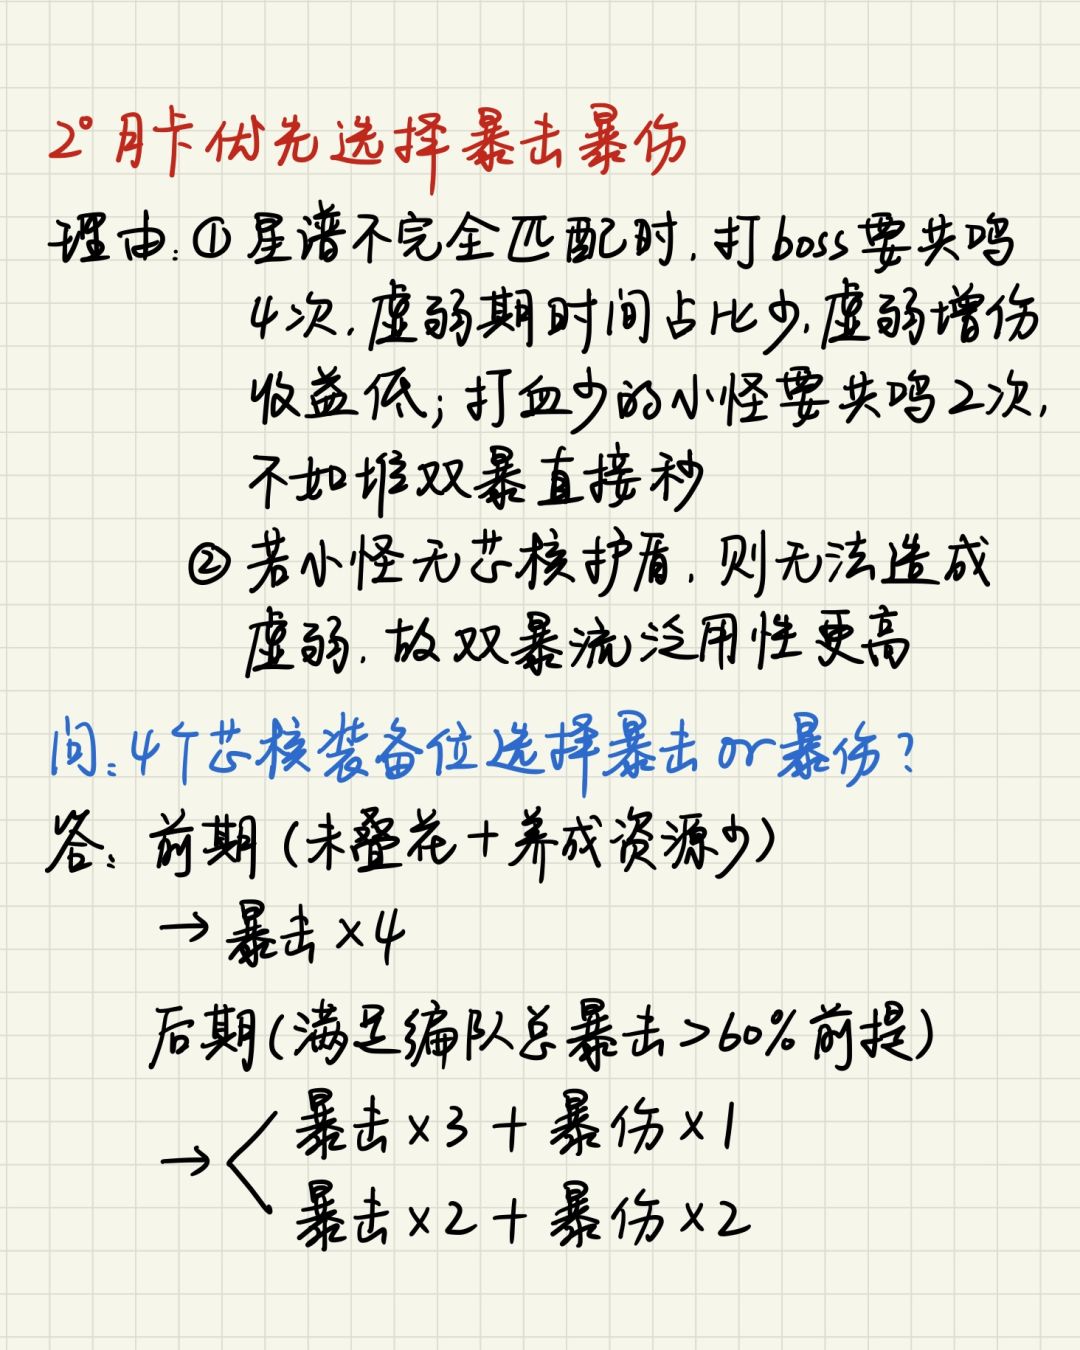 2° 月卡优先选择暴击暴伤
理由:①星谱不完全匹配时,打boss要共鸣
4次,虚弱期时间占比少,虚弱增伤
收益低;打血少的小怪要共鸣2次,
不如堆双暴直接秒
②若小怪无芯核护盾,则无法造成
虚弱,故双暴流泛用性更高
问:4个芯核装备位选择暴击or暴伤?
答:前期(未叠花+养成资源少)
→暴击×4
后期(满足编队总暴击>60%前提)
暴击×3+暴伤×1
→<
暴击×2+暴伤×2